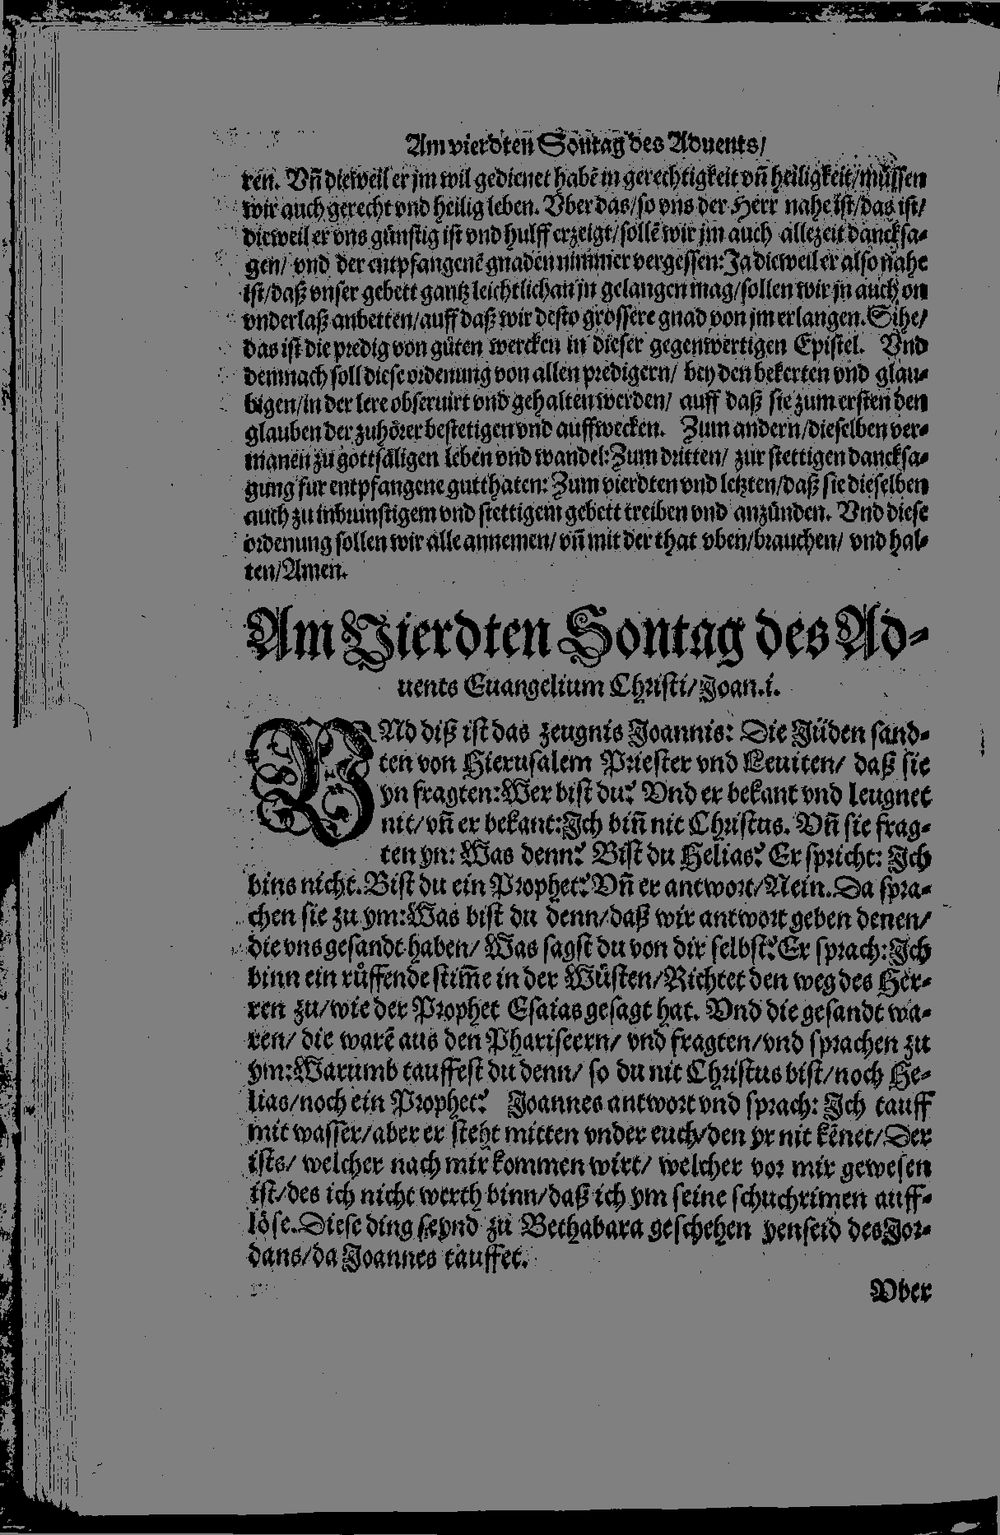 Am vierdten Sontag des Aduents/
ren. Vñ dieweil er jm wil gedienet habẽ in gerechtigkeit vñ heiligkeit/müssen
wir auch gerecht vnd heilig leben. Vber das/so vns der Herr nahe ist/das ist/
dieweil er vns günstig ist vnd hulff erzeigt/sollẽ wir jm auch allezeit dancksa-
gen/ vnd der entpfangenẽ gnaden nimmer vergessen: Ja dieweil er also nahe
ist/daß vnser gebett gantz leichtlich an jn gelangen mag/sollen wir jn auch on
vnderlaß anbetten/auff daß wir desto grössere gnad von jm erlangen. Sihe/
das ist die predig von gůten wercken in dieser gegenwertigen Epistel. Vnd
demnach soll diese ordenung von allen predigern/ bey den bekerten vnd glau-
bigen/in der lere obseruirt vnd gehalten werden/ auff daß sie zum ersten den
glauben der zuhörer bestetigen vnd auffwecken. Zum andern/dieselben ver-
manen zu gottsäligen leben vnd wandel: Zum dritten/ zur stettigen dancksa-
gung fur entpfangene gutthaten: Zum vierdten vnd letzten/daß sie dieselben
auch zu inbrünstigem vnd stettigem gebett treiben vnd anzünden. Vnd diese
ordenung sollen wir alle annemen/ vñ mit der that vben/brauchen/ vnd hal-
ten/Amen.
Am Vierdten Sontag des Ad-
uents Euangelium Christi/Joan.i.
VNd diß ist das zeugnis Joannis: Die Jüden sand-
ten von Hierusalem Priester vnd Leuiten/ daß sie
yn fragten: Wer bist du? Vnd er bekant vnd leugnet
nit/vñ er bekant: Ich biñ nit Christus. Vñ sie frag-
ten yn: Was denn? Bist du Helias? Er spricht: Ich
bins nicht. Bist du ein Prophet? Vñ er antwort/Nein. Da spra-
chen sie zu ym: Was bist du denn/daß wir antwort geben denen/
die vns gesandt haben/ Was sagst du von dir selbst? Er sprach: Ich
binn ein růffende stim̃e in der Wüsten/Richtet den weg des Her-
ren zu/wie der Prophet Esaias gesagt hat. Vnd die gesandt wa-
ren/ die warẽ aus den Phariseern/ vnd fragten/vnd sprachen zu
ym: Warumb tauffest du denn/ so du nit Christus bist/noch He-
lias/noch ein Prophet? Joannes antwort vnd sprach: Ich tauff
mit wasser/aber er steht mitten vnder euch/den yr nit kẽnet/Der
ists/ welcher nach mir kommen wirt/ welcher vor mir gewesen
ist/des ich nicht werth binn/daß ich ym seine schuchrimen auff-
löse. Diese ding seynd zu Bethabara geschehen yenseid des Jor-
dans/da Joannes tauffet.
Vber